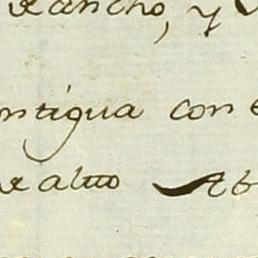 Rancho, y
ntigua con
de alto Ab